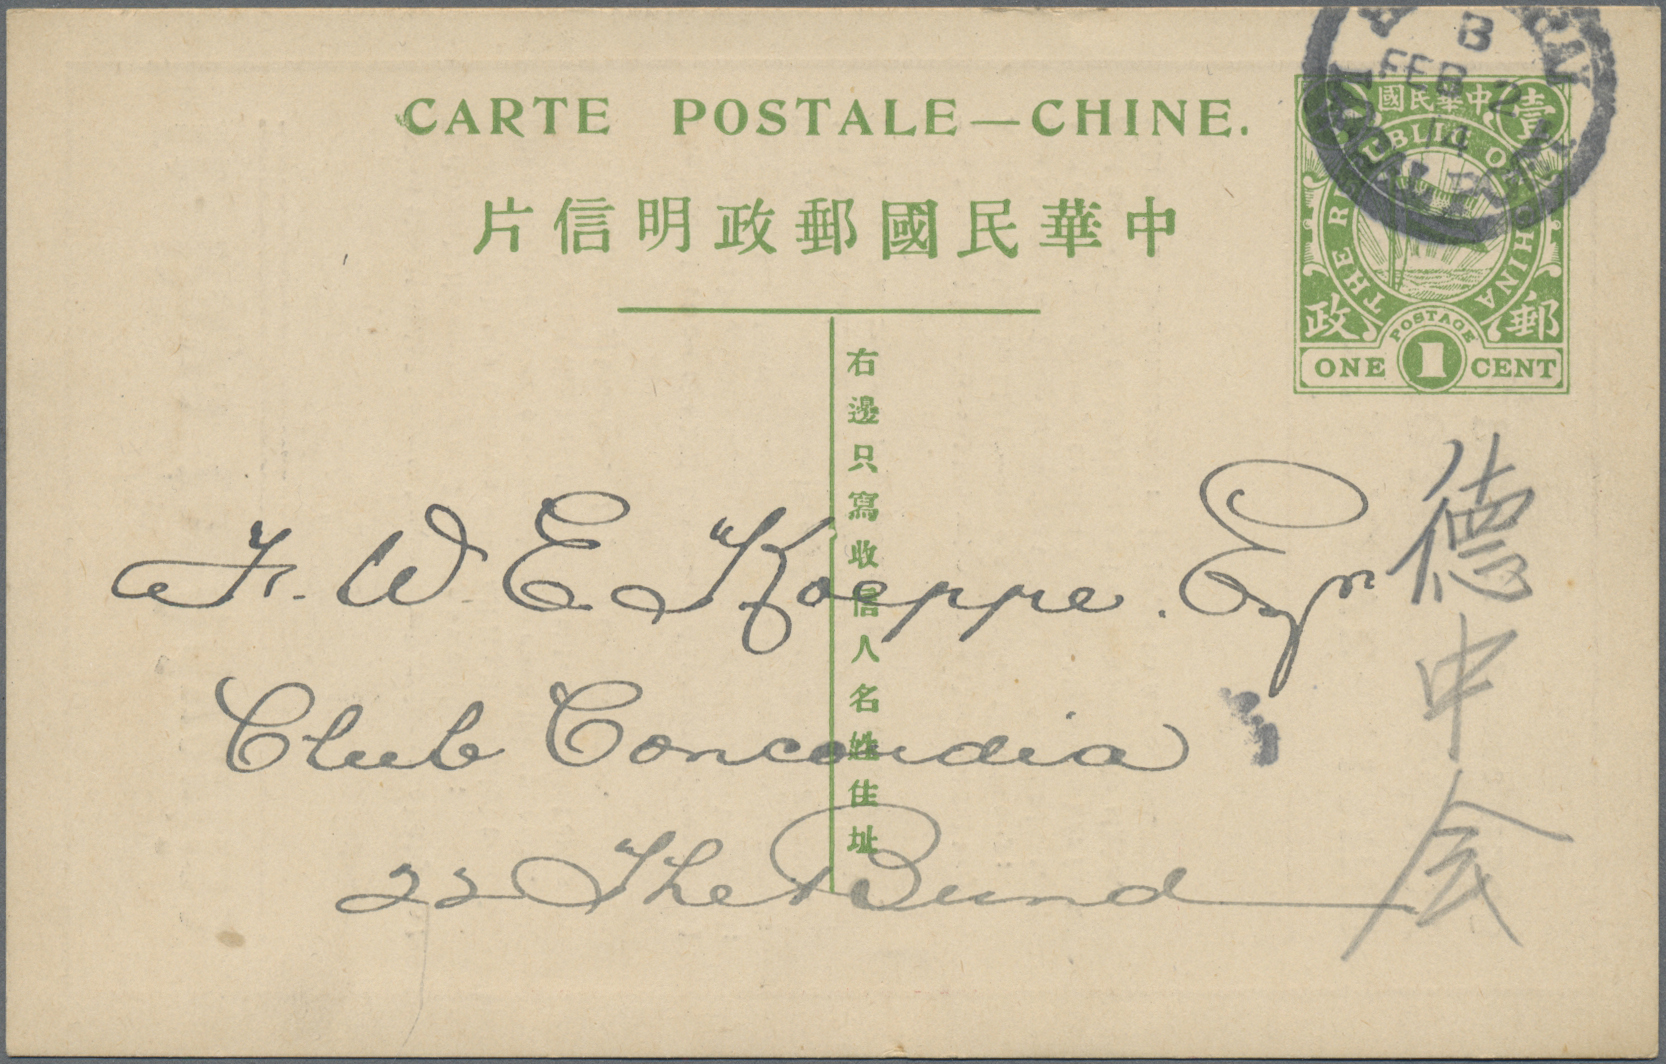 CARTE POSTALE—CHINE.
中華民國郵政明信片
B
FEB 2
14
LOCAL POST
中華民國
壹
THE REPUBLIC OF CHINA
郵政
POSTAGE
ONE 1 CENT
右邊只寫收信人名姓住址
F. W. E. Koeppe. Esqr
Club Concordia
22 The Bund
德中会